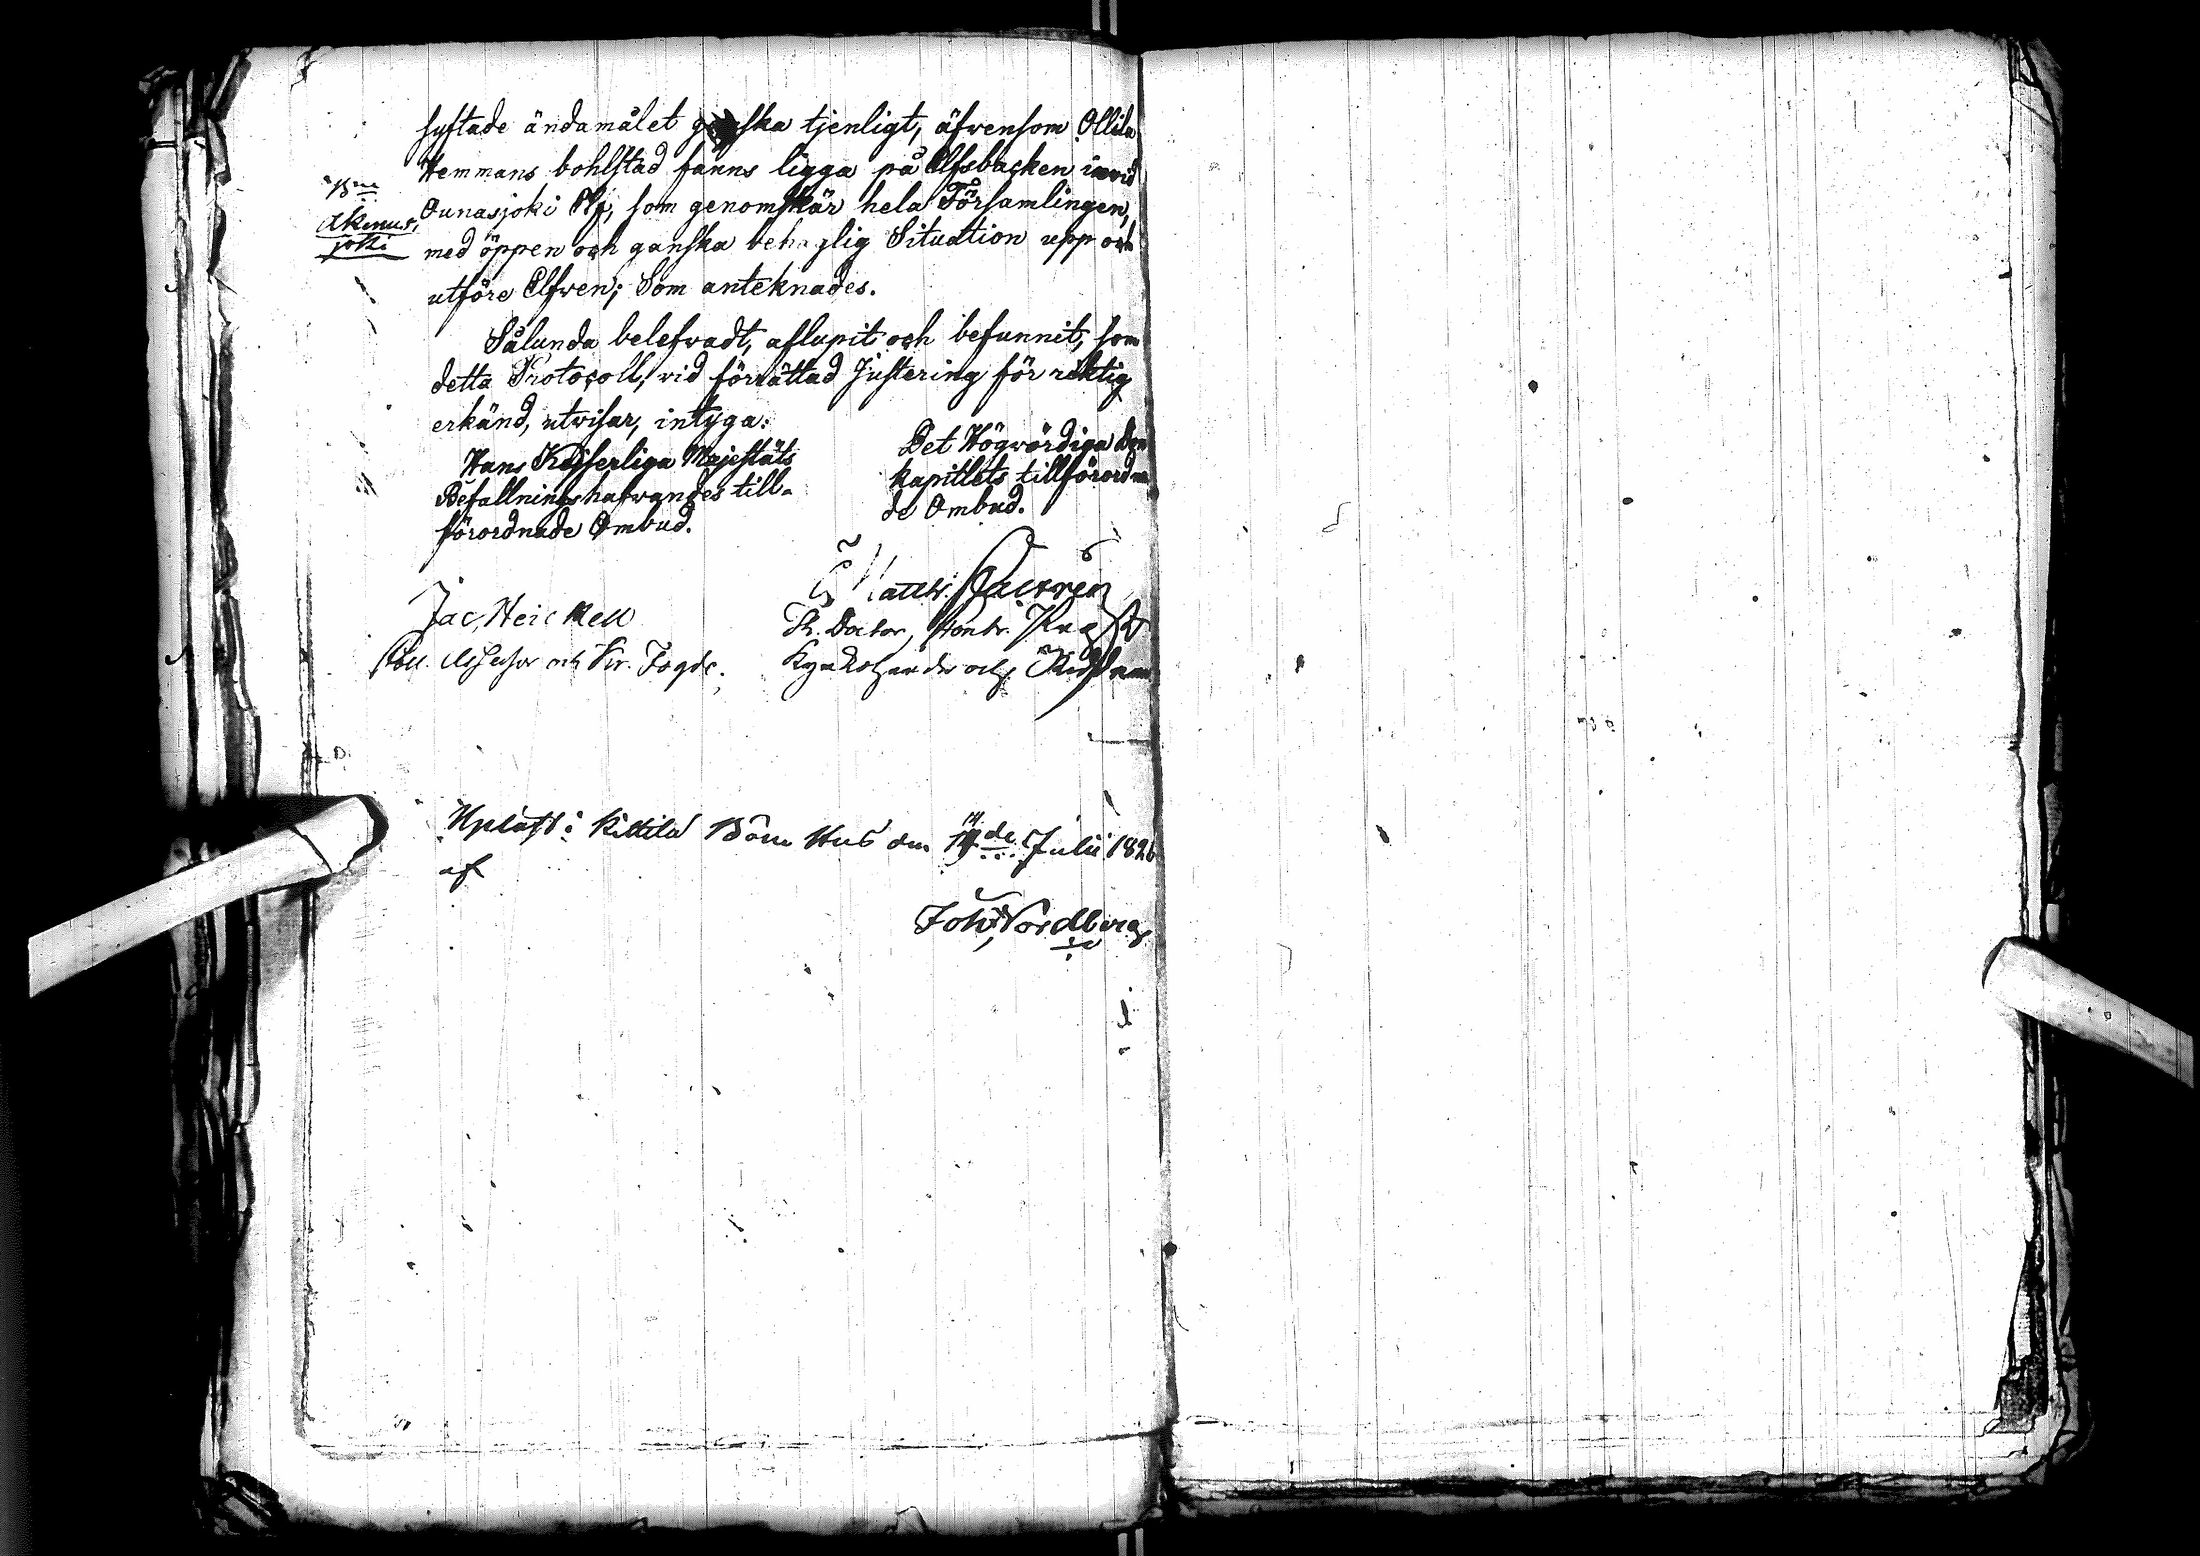 syftade ändamålet ganska tjenligt, äfvensom Ollila
Hemmans bohlstad fanns ligga på Elfsbacken invid
Ounasjoki Elf, som genomskär hela Församlingen,
med öppen och ganska behaglig Situation upp och
utföre Elfven; Som anteknades.
Akenus,
joki
Sålunda belefvadt, aflupit och befunnit, som
detta Protocoll, vid förrättad Justering för riktig
erkänd, utvisar, intyga:
Hans Kejserliga Majestäts
Befallningshafvandes till-
förordnade Ombud.
Jac, Heickell
Coll. Assessor och Kr. Fogde.
Det Högvördiga Dom
kapitlets tillförordna
de Ombud.
Matth.
Th. Doctor, Contr. Prost
Kyrkoherde och
Upläst i Kittilä Böne Hus den 14de Julii 1826
af
Joh: Nordberg